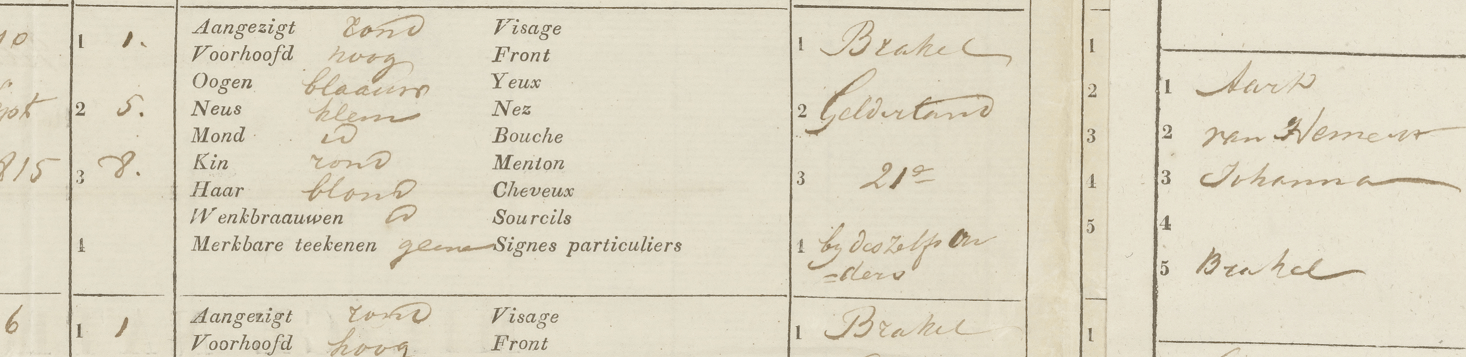 10
1 1.
Aangezigt rond Visage
Voorhoofd hoog Front
Oogen blaauw Yeux
2 5.
Neus klein Nez
Mond id Bouche
815
3 8.
Kin rond Menton
Haar blond Cheveux
Wenkbraauwen id Sourcils
4
Merkbare teekenen geene Signes particuliers
1 Brakel
2 Gelderland
3 21e
4 by deszelfs ou
=ders
1
2
3
4
5
1 Aart
2 van
3 Johanna
4
5 Brakel
6
1 1
Aangezigt rond Visage
Voorhoofd hoog Front
1 Brakel
1